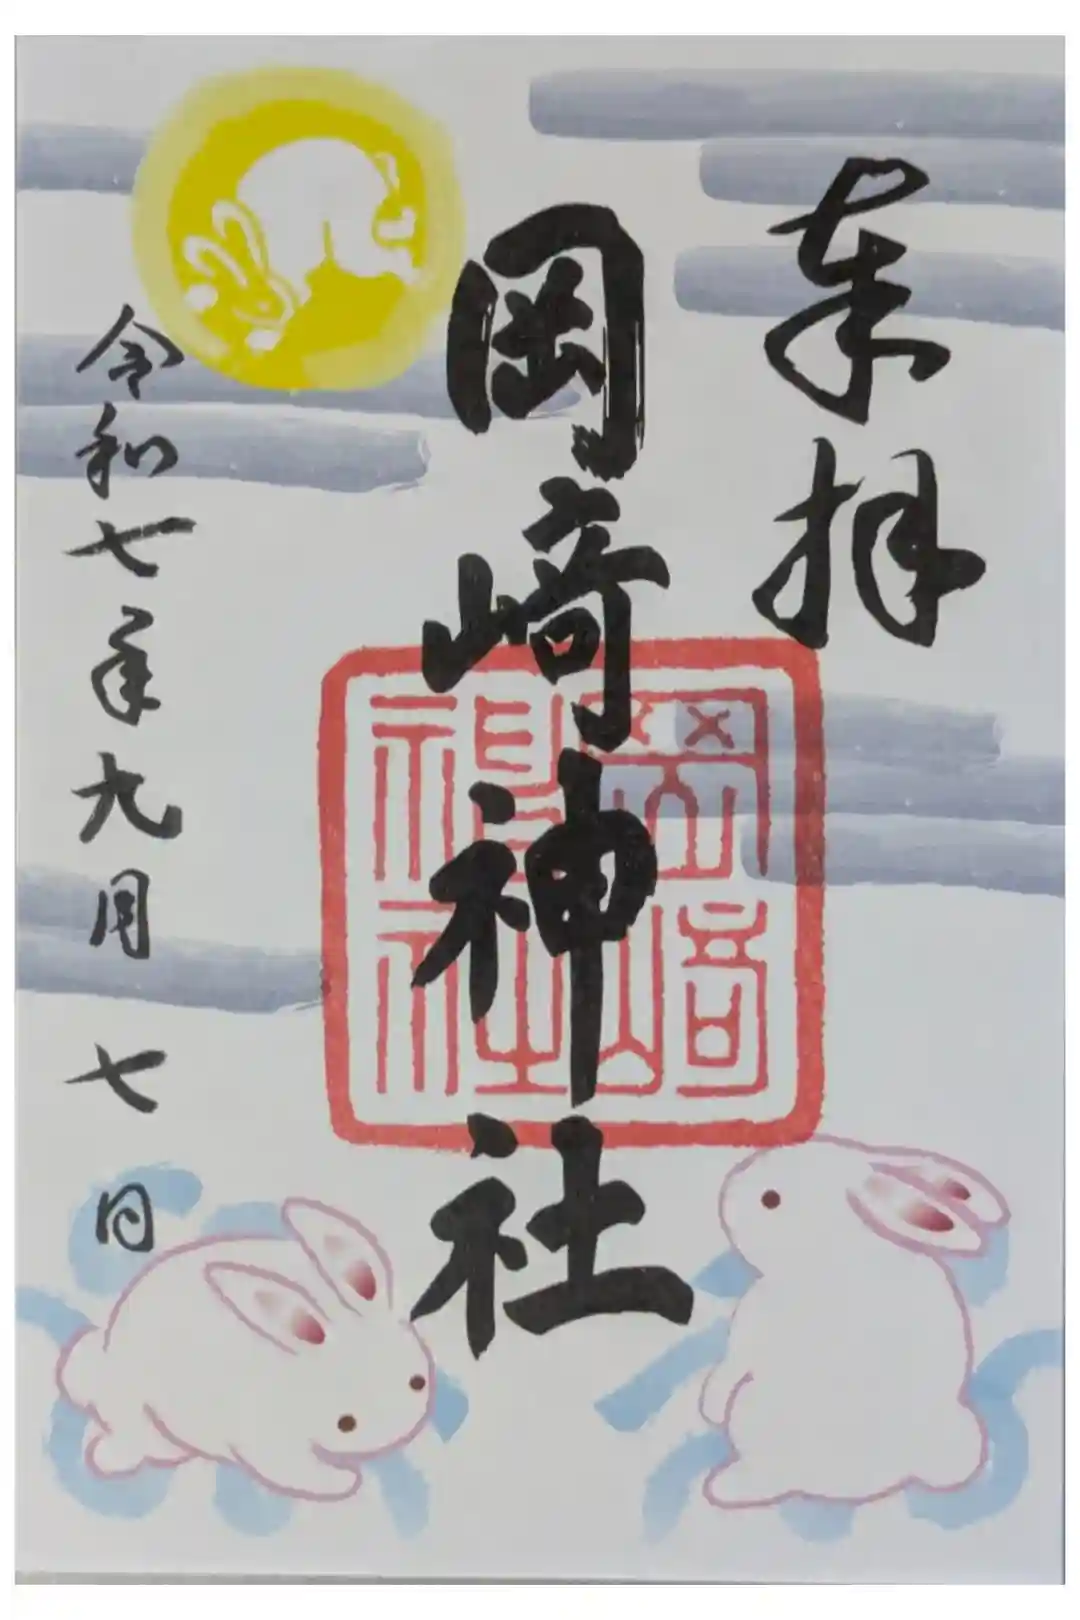 奉拝
岡﨑神社
岡﨑神社
令和七年九月七日